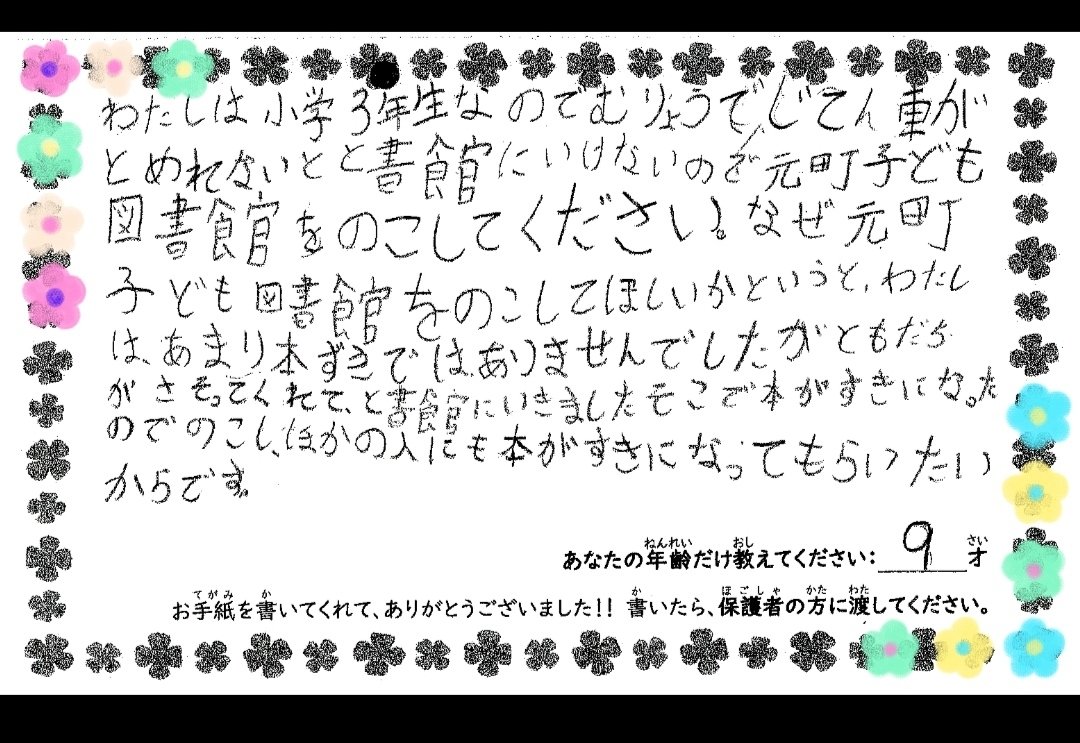 わたしは小学3年生なのでむりょうでじてん車が
とめれないとと書館にいけないので元町子ども
図書館をのこしてください。なぜ元町
子ども図書館をのこしてほしいかというと、わたし
は、あまり本ずきではありませんでしたがともだち
がさそってくれて、と書館にいきましたそこで本がすきになった
のでのこし、ほかの人にも本がすきになってもらいたい
からです。
あなたの年齢だけ教えてください:9才
ねんれい おし さい
お手紙を書いてくれて、ありがとうございました!! 書いたら、保護者の方に渡してください。
てがみ か か ほごしゃ かた わた